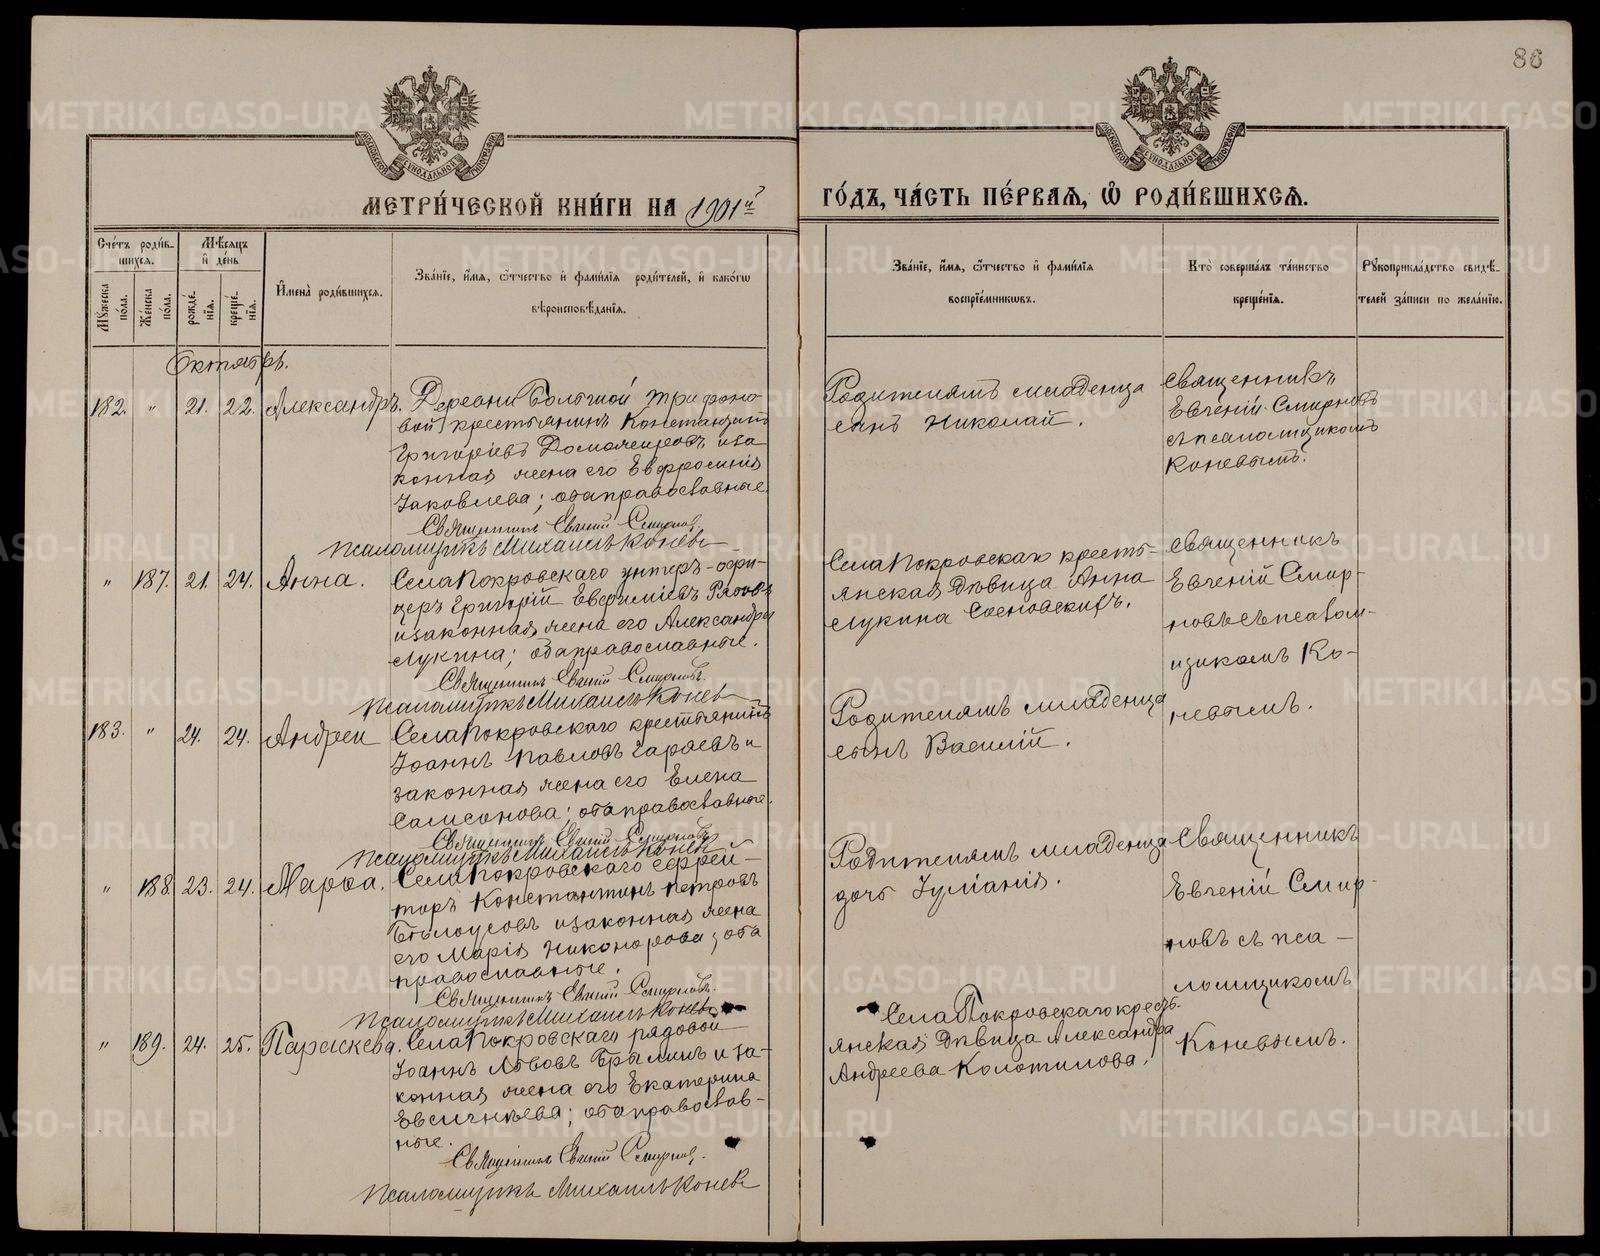 86
МОСКОВСКОЙ СѴНОДАЛЬНОЙ ТИПОГРАФІИ
МОСКОВСКОЙ СѴНОДАЛЬНОЙ ТИПОГРАФІИ
МЕТРИ́ЧЕСКОЙ КНИ́ГИ НА 1901й
ГО́ДЪ, ЧА́СТЬ ПЕ́РВАЯ, Ѽ РОДИ́ВШИХСЯ.
Сче́тъ роди́в-
шихся.
Мѣ́сяцъ
и҆ де́нь
Мꙋ́жеска по́ла.
Же́нска по́ла.
рожде́-нїя.
креще́-нїя.
И҆мена̀ роди́вшихся.
Зва́нїе, и҆́мя, ѻ҆́тчество и҆ фами́лїя роди́телей, и҆ како́гѡ
вѣроисповѣ́данїя.
Зва́нїе, и҆́мя, ѻ҆́тчество и҆ фами́лїя
воспрїе́мникѡвъ.
Кто̀ соверша́лъ та́инство
креще́нїя.
Рꙋкоприкла́дство свидѣ́-
телей за́писи по жела́нїю.
Октябрь.
182. " 21. 22. Александръ.
Деревни Большой Трифоно-
вой крестьянинъ Константинъ
Григоріевъ Домаchировъ и за
конная жена его Евфросинія
Іаковлева; оба православные.
Священникъ Евгеній Смирновъ
Псаломщикъ Михаилъ Коневъ
Родителямъ младенца
сынъ Николай.
Священникъ
Евгеній Смирновъ
съ псаломщикомъ
Коневымъ.
" 187. 21. 24. Анна.
Села Покровскаго унтеръ-офи-
церъ Григорій Евфиміевъ
и законная жена его Александра
Лукина; оба православные.
Священникъ Евгеній Смирновъ.
Псаломщикъ Михаилъ Коневъ
Села Покровскаго кресть-
янская дѣвица Анна
Лукина Сосновскихъ.
Священникъ
Евгеній Смир-
новъ съ псалом-
щикомъ Ко-
невымъ.
183. " 24. 24. Андрей
Села Покровскаго крестьянинъ
Іоаннъ Павловъ Гаряевъ и
законная жена его Елена
Самсонова; оба православные.
Священникъ Евгеній Смирновъ
Псаломщикъ Михаилъ Коневъ
Родителямъ младенца
сынъ Василій.
" 188 23. 24. Марѳа.
Села Покровскаго ефрей-
торъ Константинъ Петровъ
Бѣлоусовъ и законная жена
его Марія Никонорова; оба
православные.
Священникъ Евгеній Смирновъ.
Псаломщикъ Михаилъ Коневъ
Родителямъ младенца
дочь Іуліанія.
Священникъ
Евгеній Смир-
новъ съ пса-
ломщикомъ
Коневымъ.
" 189. 24. 25. Параскева.
Села Покровскаго рядовой
Іоаннъ Львовъ Брылинъ и за-
конная жена его Екатерина
Евсигніева; оба православ-
ные.
Священникъ Евгеній Смирновъ.
Псаломщикъ Михаилъ Коневъ
Села Покровскаго кресть-
янская дѣвица Александра
Андреева Колотилова.
METRIKI.GASO-URAL.RU